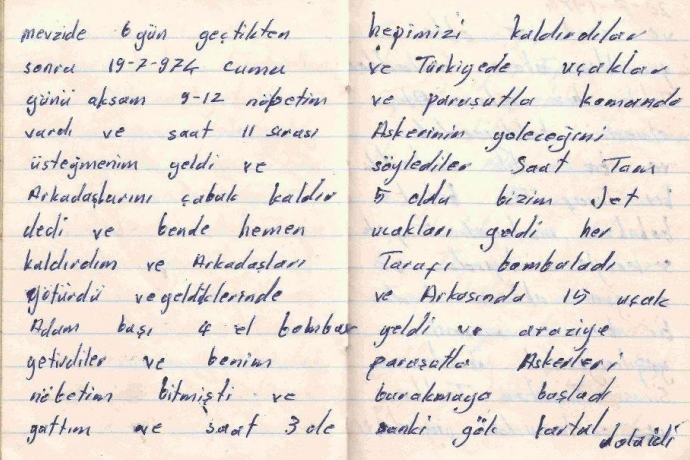 mevzide 6 gün geçtikten
sonra 19-7-974 cuma
günü akşam 9-12 nöbetim
vardı ve saat 11 sırası
üsteğmenim geldi ve
Arkadaşlarını çabuk kaldır
dedi ve bende hemen
kaldırdım ve Arkadaşları
götürdü ve geldiklerinde
Adam başı 4 el bombası
getirdiler ve benim
nöbetim bitmişti ve
yattım ve saat 3 de
hepimizi kaldırdılar
ve Türkiyede uçaklar
ve paraşutla komando
Askerinin geleceğini
söylediler Saat Tam
5 oldu bizim Jet
ucakları geldi her
Tarafı bombaladı
ve Arkasında 15 uçak
geldi ve araziye
paraşutla Askerleri
burakmaya başladı
sanki gök kartal dolaidi